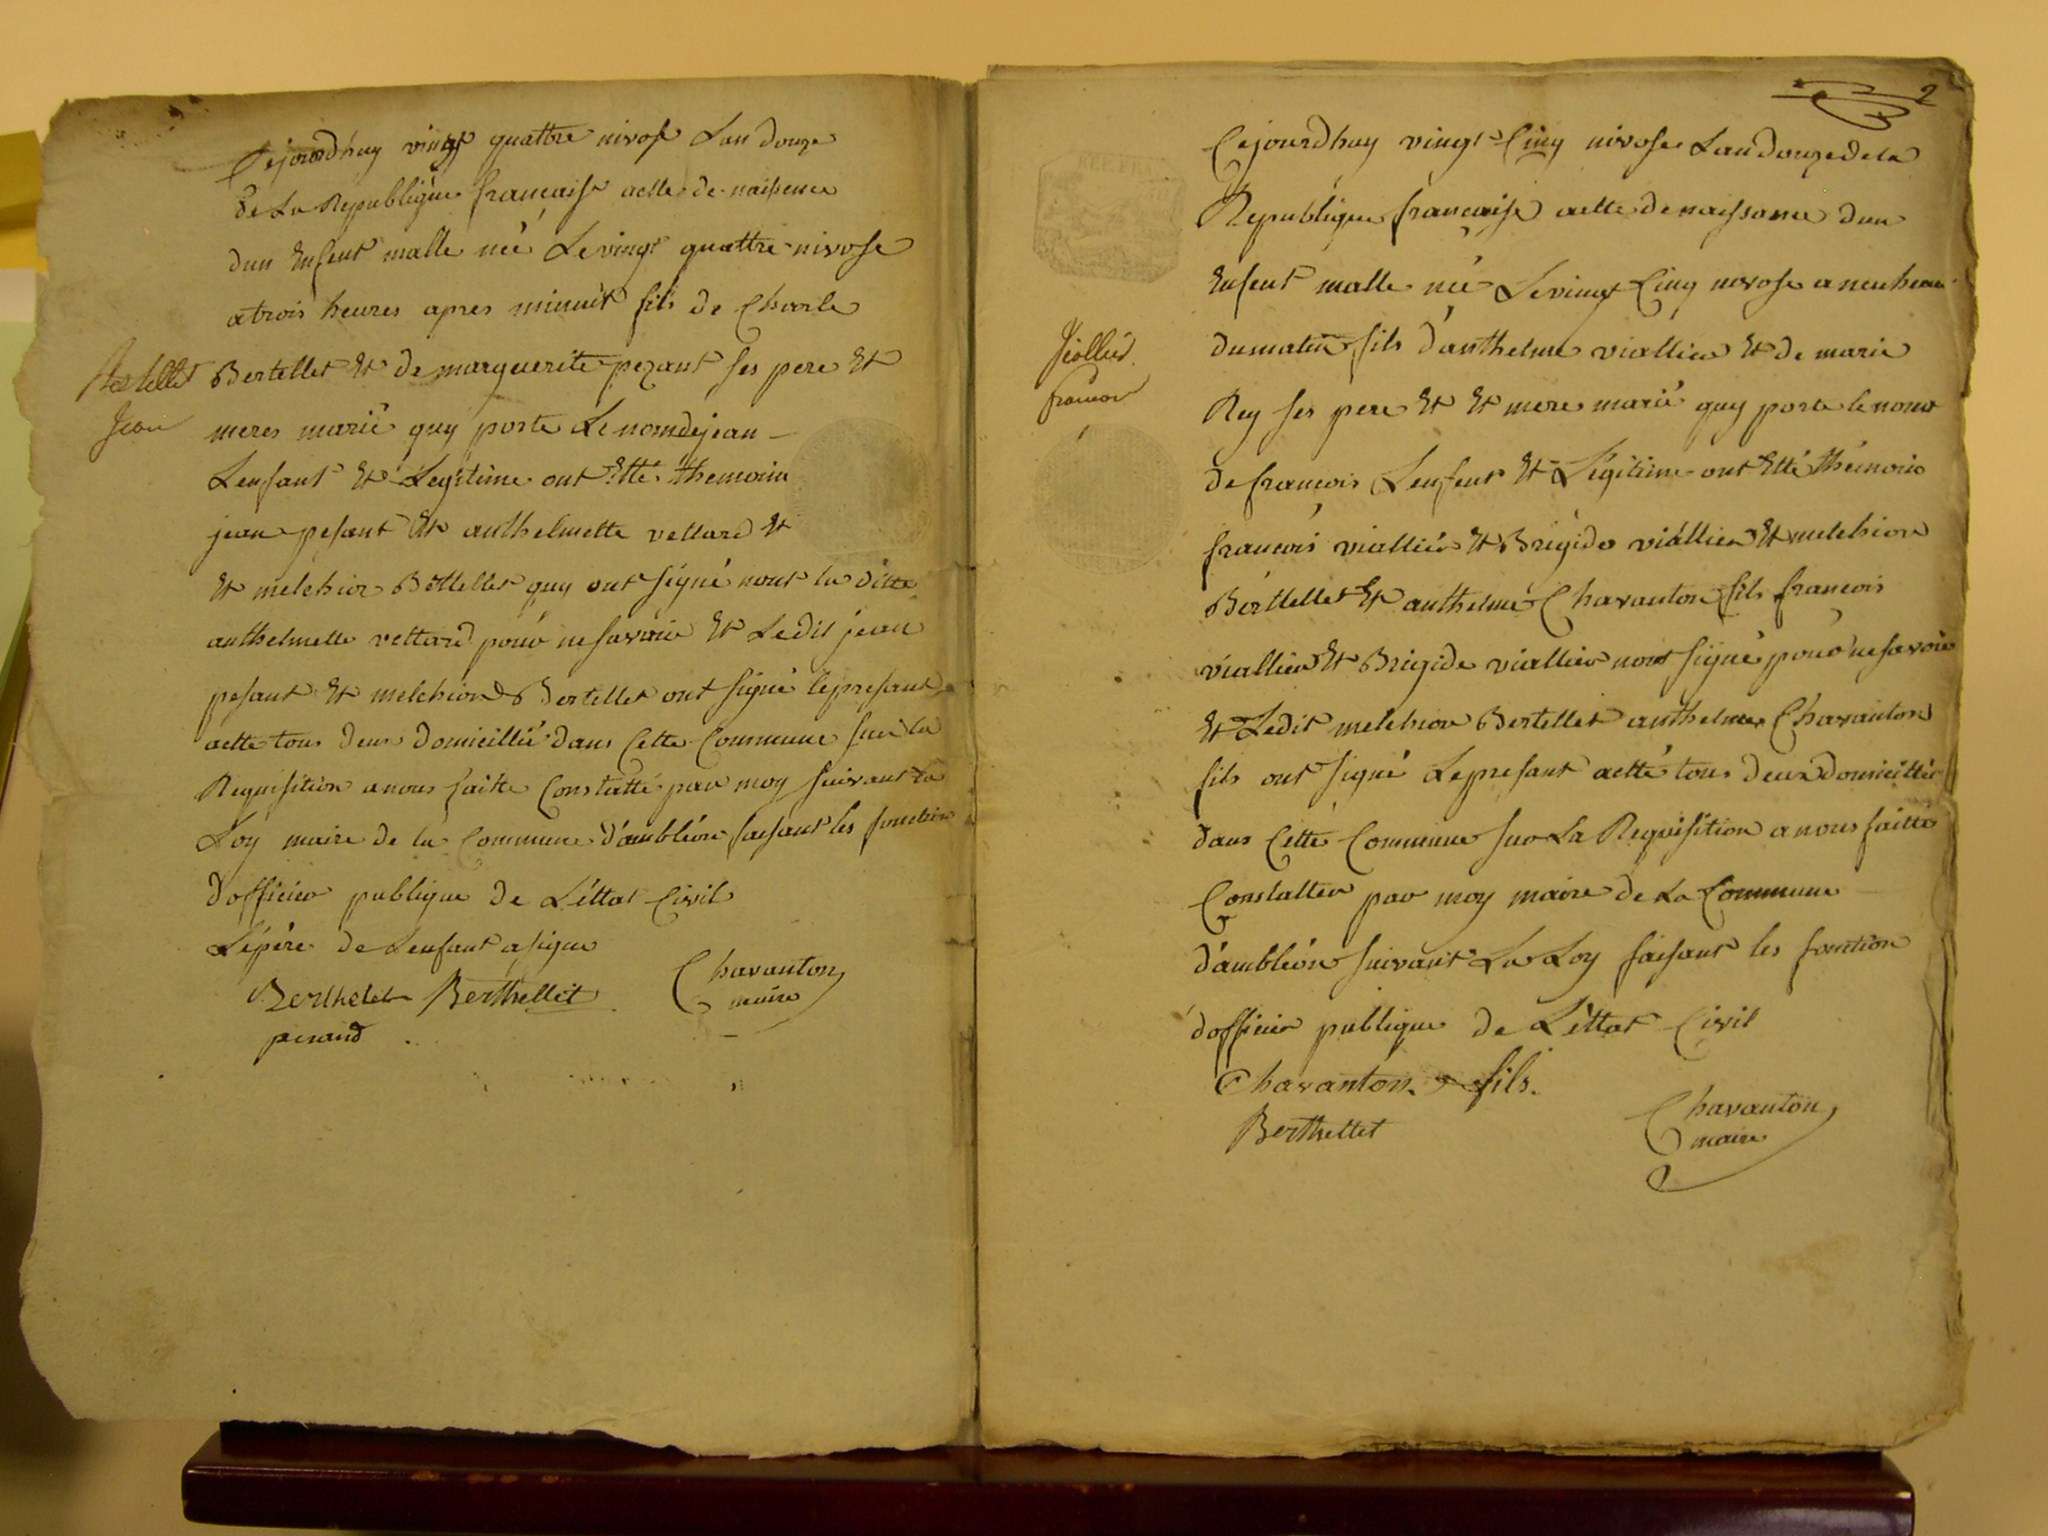 Cejourdhuy vingt quattre nivose Lan douze
de La Republique francaise acte de naissence
dun Enfent malle neé Levingt quattre nivose
atrois heures apres minuit fils de Charle
Bertellet Et de marguerite pezant ses pere Et
meres marié quy porte Le nom dejean
Lenfant Et Legitime ont Ette themoin
jean pesant Et anthelmette vettard Et
Et melchior Bertellet quy ont signé nont la ditte
anthelmette vettard pour nesavoir Et Ledit jean
pesant Et melchior Bertellet ont signé lepresant
actte tous deux domicillié dans Cette Commune sur la
Requisition anous faitte Constatté par moy suivant La
Loy maire de la Commune d'ambléon faisant les fonction
dofficier publique de L'éttat Civil
Lepére de Lenfant asigne
Berthelet Berthellet Chavanton
maire
penand
Bertellet
Jean
2
Cejourdhuy vingt Cinq nivose Landouzedela
Republique francaise actte de naissance dun
Enfent malle neé Levingt Cinq nivose aneuheure
dumatin fils d'anthelme viallier Et de marie
Rey ses pere Et Et mere marié quy porte lenom
de francois Lenfent Et Légitime ont Etté thémoin
francois viallier Et Brigide viallier Et melchior
Berttellet Et anthelme Chavanton fils francois
viallier Et Brigide viallier nont signé pour nesavoir
Et Ledit melchior Bertellet anthelme Chavanton
fils ont signé Lepresant actte tous deux domicillié
dans Cette Commune sur La Requisition anous faitte
Constatter par moy maire de La Commune
d'ambléon suivant La Loy faisant les fonction
dofficier publique de L'éttat Civil
Chavanton fils.
Berthellet Chavanton
maire
francois